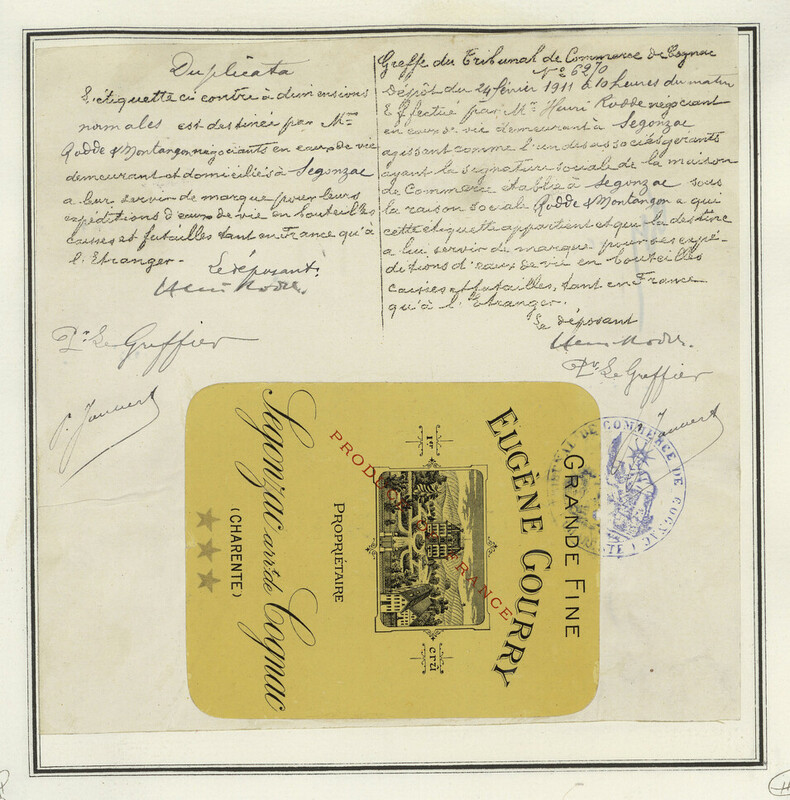 Duplicata
L'étiquette ci contre à dimensions
normales est destinée par MM
Rodde & Montangon négociants en eaux de vie
demeurant et domiciliés à Segonzac
a leur servir de marque pour leurs
expéditions d'eaux de vie en bouteilles
caisses et futailles tant en France qu'à
l'Etranger.
Le déposant:
Henri Rodde.
Pr Le Greffier
P. Jauvert
Greffe du Tribunal de Commerce de Cognac
No 6270
Dépôt du 24 février 1911 à 10 heures du matin
Effectué par Mr. Henri Rodde négociant
en eaux de vie demeurant à Segonzac
agissant comme l'un des associés gérants
ayant la signature sociale de la maison
de Commerce établie à Segonzac sous
la raison sociale Rodde & Montangon a qui
cette étiquette appartient et qui la destine
a lui servir de marque pour ses expé-
ditions d'eaux de vie en bouteilles
caisses et futailles, tant en France
qu'à l'Etranger.
Le déposant
Henri Rodde.
Pr Le Greffier
Jauvert
TRIBUNAL DE COMMERCE DE COGNAC
GRANDE FINE
EUGÈNE GOURRY
1er crû
PRODUCE OF FRANCE
PROPRIÉTAIRE
Segonzac arrt de Cognac
(CHARENTE)